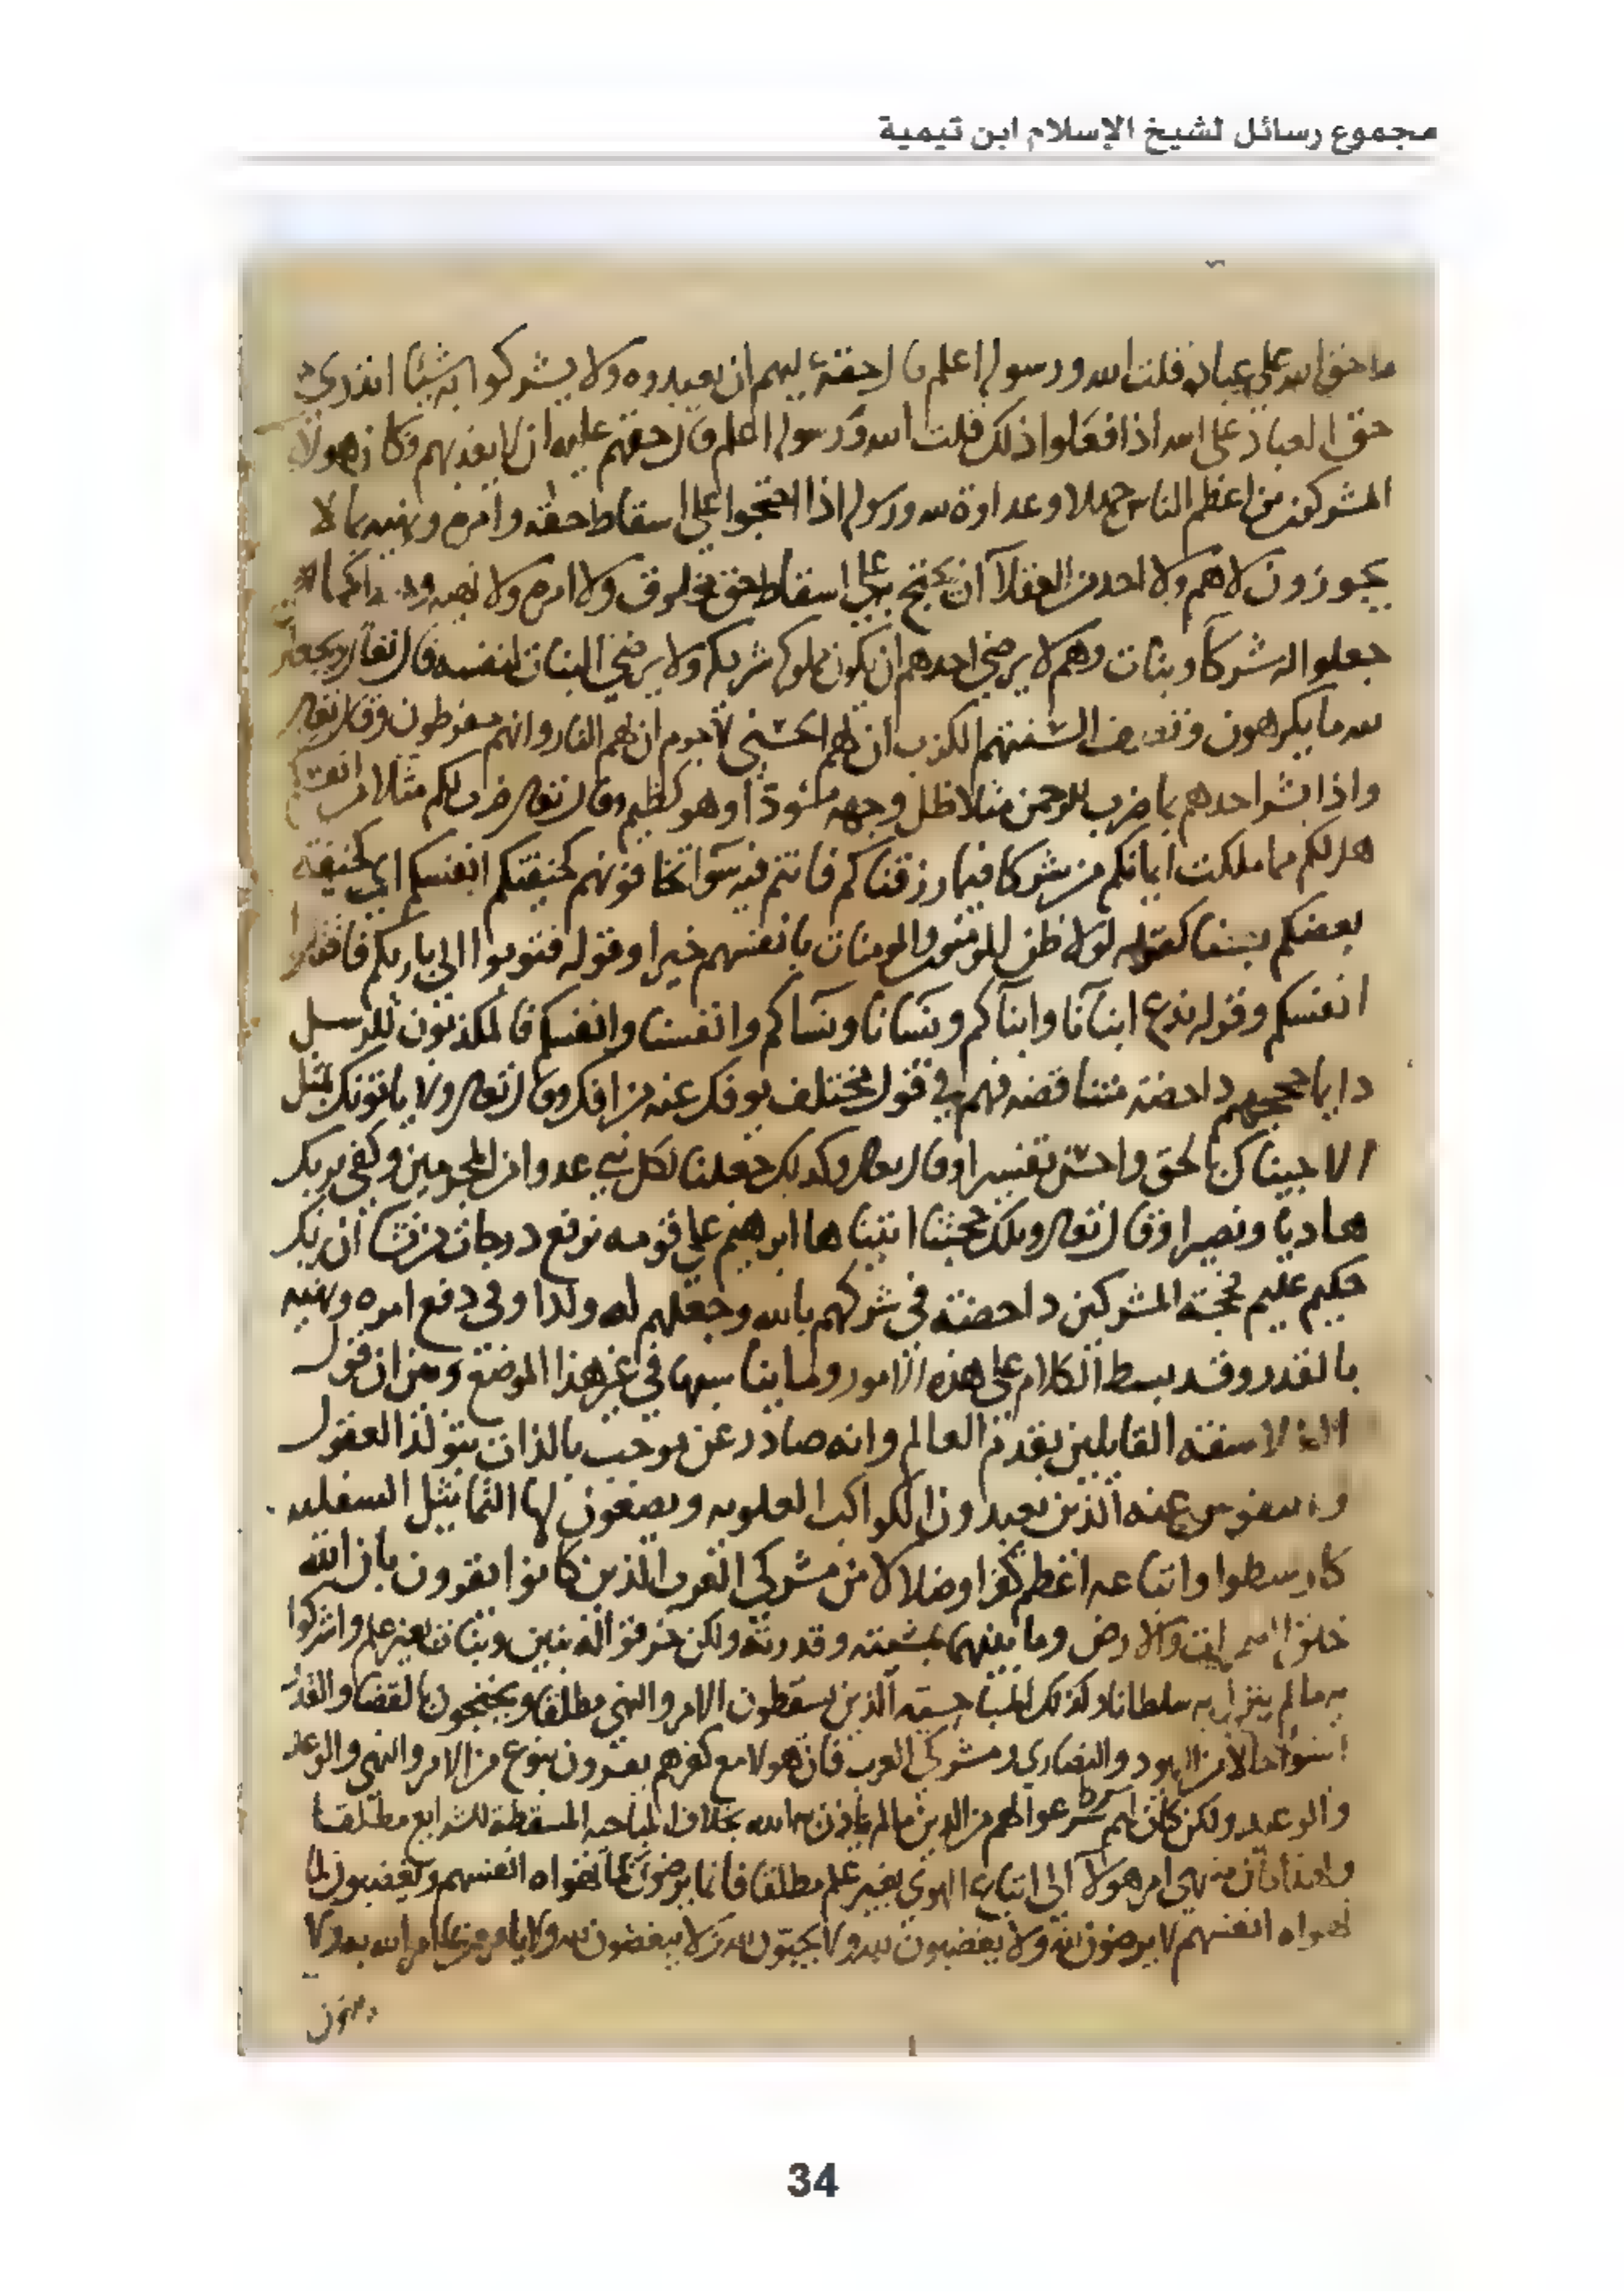 مجموع رسائل لشيخ الإسلام ابن تيمية
ما حق الله على عباده قلت الله ورسوله اعلم قال حقه عليهم ان يعبدوه ولا يشركوا به شيئا اتدري ما
حق العباد على الله اذا فعلوا ذلك قلت الله ورسوله اعلم قال حقهم عليه ان لا يعذبهم فكان هولاء
المشركين من اعظم الناس جهلا وعداوة لله ورسوله اذا احتجوا على اسقاط حقه وامره ونهيه بما لا
يجوزون لا هم ولا احد من العقلاء ان يحتج به على اسقاط حق مخلوق ولا امره ولا نهيه وهذا كما
جعلوا له شركا وبنات وهم لا يرضى احدهم ان يكون مملوكه شريكه ولا يرضى البنات لنفسه قال تعالى ويجعلون
لله ما يكرهون وتصف السنتهم الكذب ان لهم الحسنى لا جرم ان لهم النار وانهم مفرطون وقال تعالى
واذا بشر احدهم بما ضرب للرحمن مثلا ظل وجهه مسودا وهو كظيم وقال تعالى ضرب لكم مثلا من انفسكم
هل لكم مما ملكت ايمانكم من شركا فيما رزقناكم فانتم فيه سوآ تخافونهم كخيفتكم انفسكم اي كخيفة
بعضكم بعضا كقوله لولا ظن المومنون والمومنات بانفسهم خيرا وقوله فتوبوا الى باريكم فاقتلوا
انفسكم وقوله ندع ابنآنا وابنآكم ونسانا ونسآكم وانفسنا وانفسكم فالمكذبون للرسل
دايما حججهم داحضة متناقضه فهم في قول مختلف يوفك عنه من افك وقال تعالى ولا ياتونك بمثل
الا جيناك بالحق واحسن تفسيرا وقال تعالى وكذلك جعلنا لكل نبي عدوا من المجرمين وكفى بربك
هاديا ونصيرا وقال تعالى وتلك حجتنا اتيناها ابرهيم على قومه نرفع درجات من نشا ان ربك
حكيم عليم فحجة المشركين داحضة في شركهم بالله وجعلهم له ولدا وفي دفع امره ونهيه
بالقدر وقد بسط الكلام على هذه الامور وما يناسبها في غير هذا الموضع وبين ان قول
الفلاسفة القايلين بقدم العالم وانه صادر عن موجب بالذات يتولد العقول
والنفوس عنه الذين يعبدون الكواكب العلوية ويصنعون لها التماثيل السفليه
كارسطوا واتباعه اعظم كفرا وضلالا من مشركي العرب الذين كانوا يقرون بان الله
خلق السموات والارض وما بينهما بمشيته وقدرته ولكن خرقوا له بنين وبنات بغير علم واشركوا
به ما لم ينزل به سلطانا وكذلك المباحيه الذين يسقطون الامر والنهي مطلقا ويحتجون بالقضا والقدر
اسوأ حالا من اليهود والنصارى ومشركي العرب فان هولا مع كفرهم يقرون بنوع من الامر والنهي والوعد
والوعيد ولكن كان لهم شركا شرعوا لهم من الدين ما لم ياذن به الله بخلاف المباحيه المسقطة للشرايع مطلقا
ولهذا كان منتهى امر هولآ الى اتباع الهوى بغير علم مطلقا فانما يرضون لما تهواه انفسهم ويغضبون لما
تهواه انفسهم لا يرضون لله ولا يغضبون لله ولا يحبون لله ولا يبغضون لله ولا يامرون بما امر الله به ولا
34